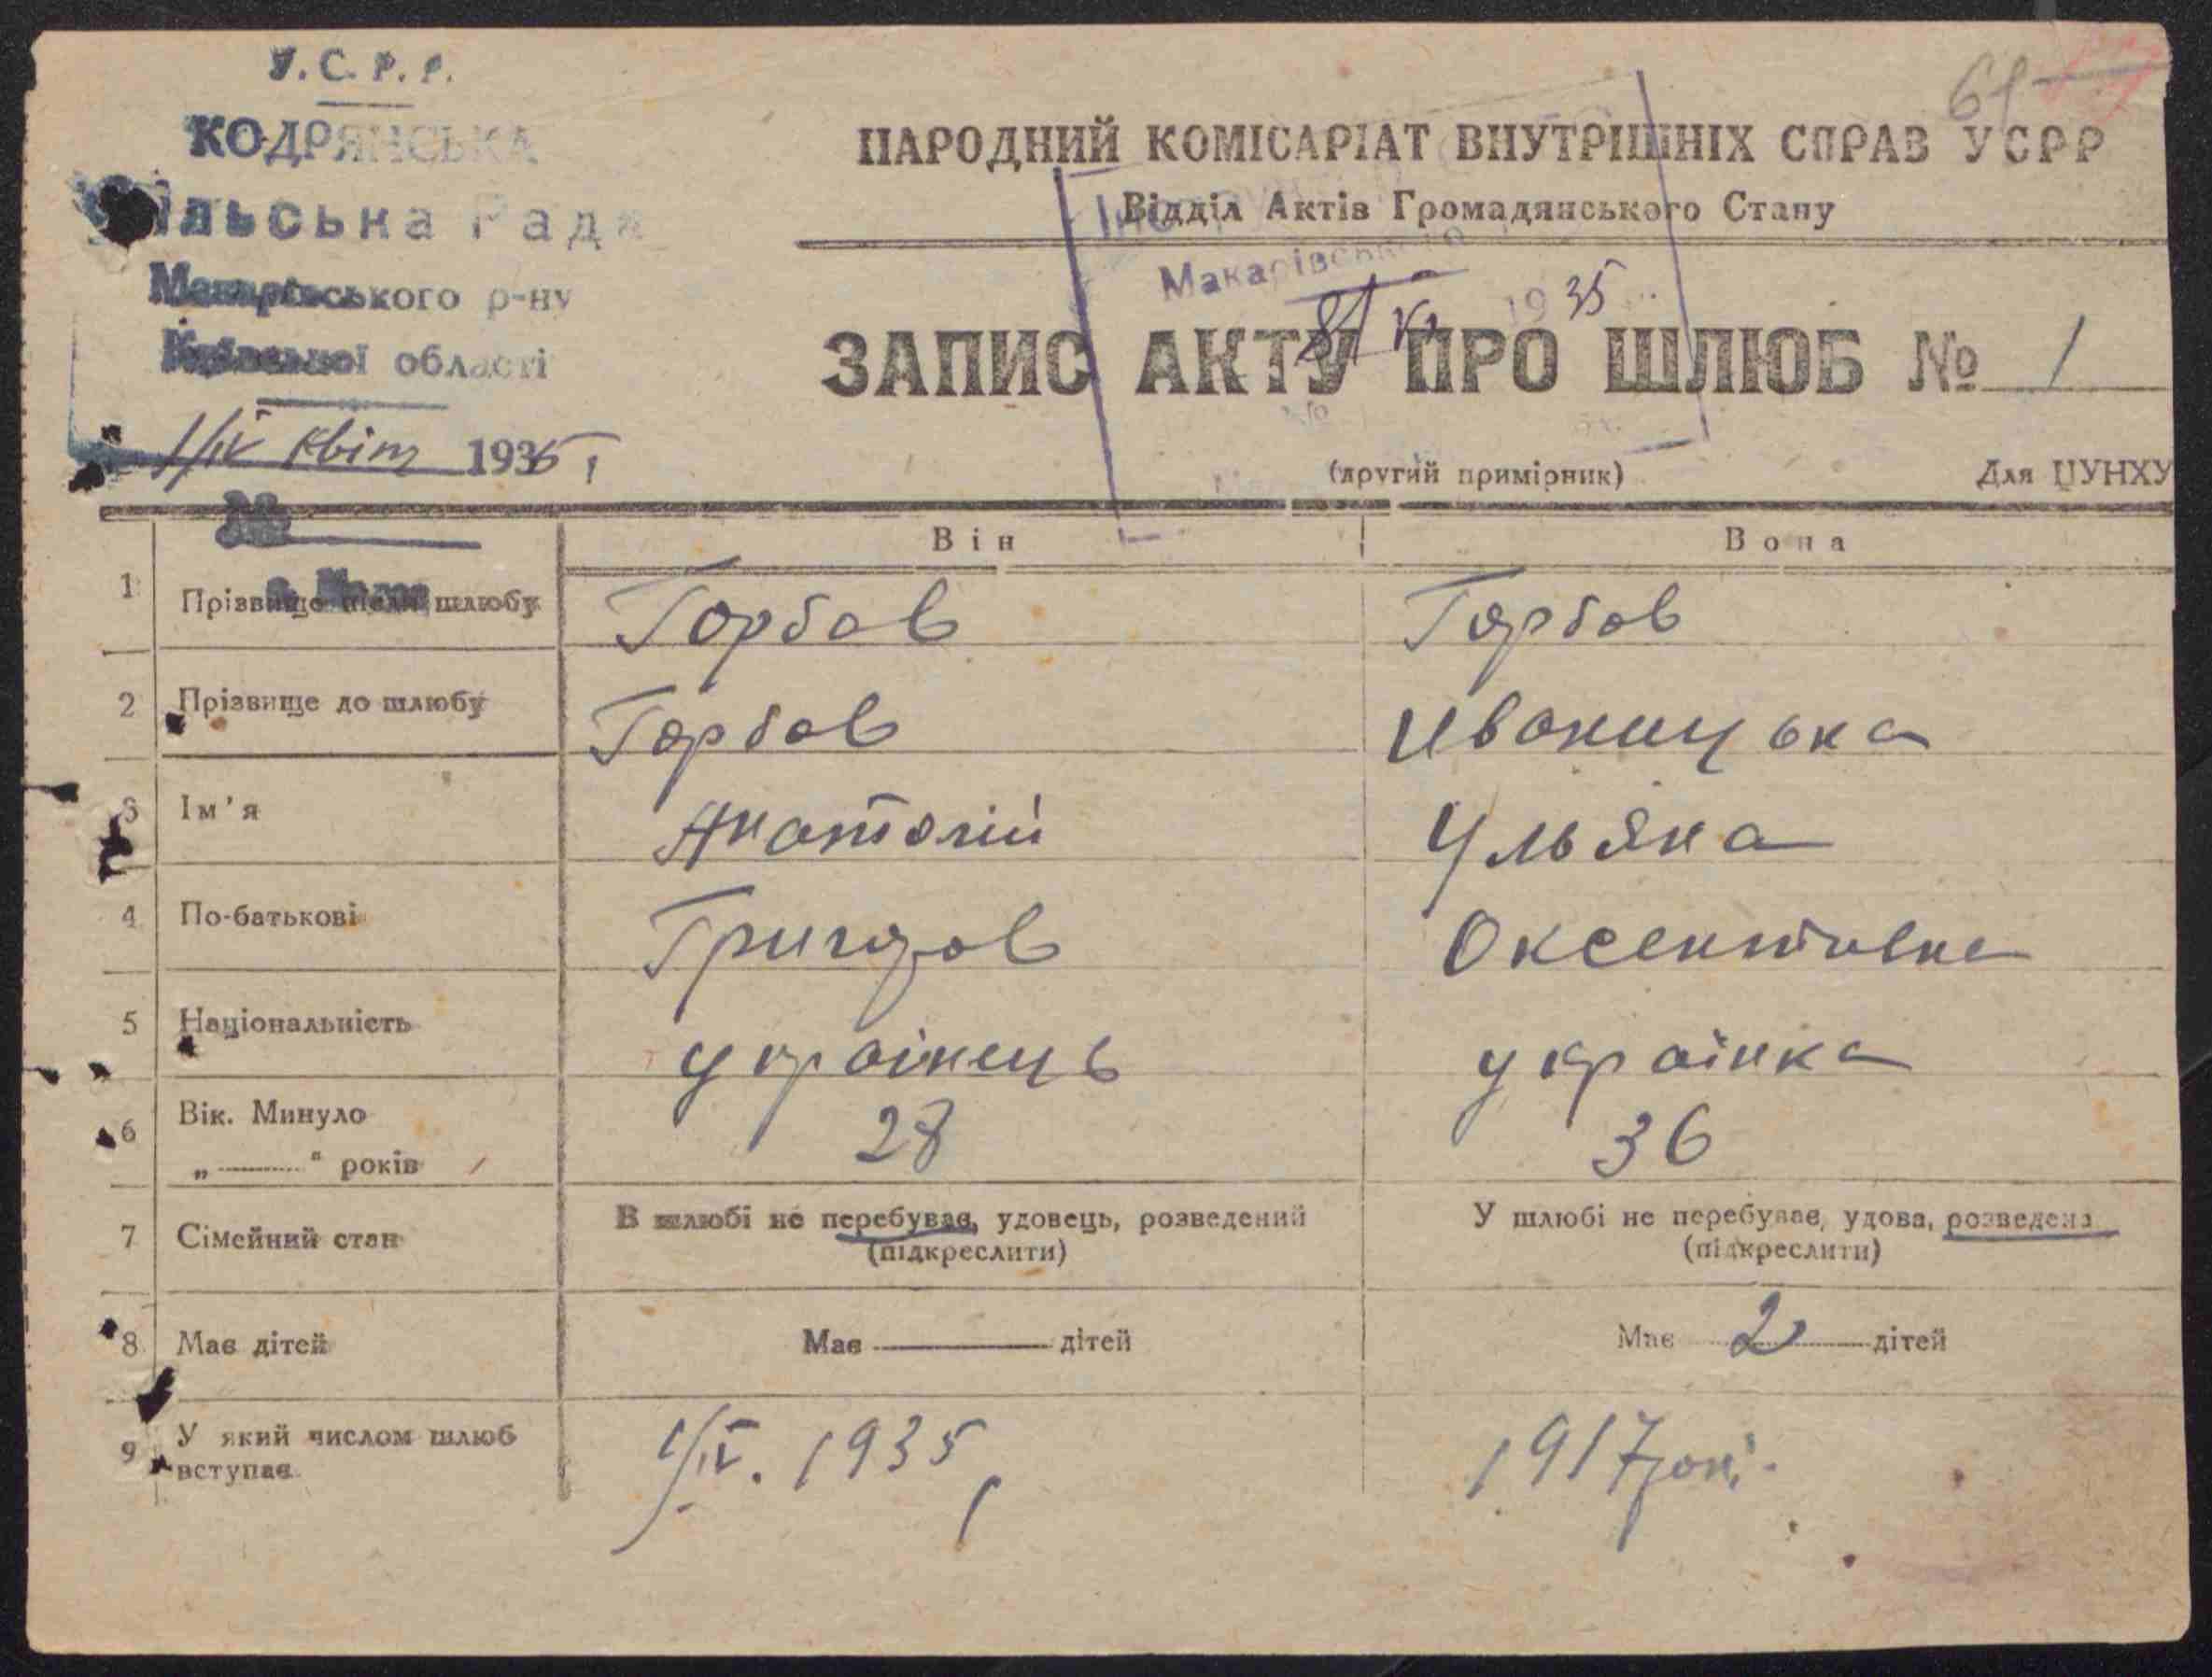 У.С.Р.Р.
КОДРЯНСЬКА
Сільська Рада
Макарівського р-ну
Київської області
1/IV квіт 1935
№
61
НАРОДНИЙ КОМІСАРІАТ ВНУТРІШНІХ СПРАВ УСРР
Відділ Актів Громадянського Стану
Макарівського
8/IV 1935
ЗАПИС АКТУ ПРО ШЛЮБ № 1
(другий примірник) Для ЦУНХУ
Він Вона
1 Прізвище після шлюбу Горбов Горбов
2 Прізвище до шлюбу Горбов Иваницька
3 Ім'я Анатолій Ульяна
4 По-батькові Григоров Оксентивна
5 Національність українець українка
6 Вік. Минуло 28 36
„ “ років
7 Сімейний стан В шлюбі не перебуває, удовець, розведений У шлюбі не перебуває, удова, розведена
(підкреслити) (підкреслити)
8 Має дітей Має дітей Має 2 дітей
9 У який числом шлюб
вступає 1/IV. 1935 1917 рокі